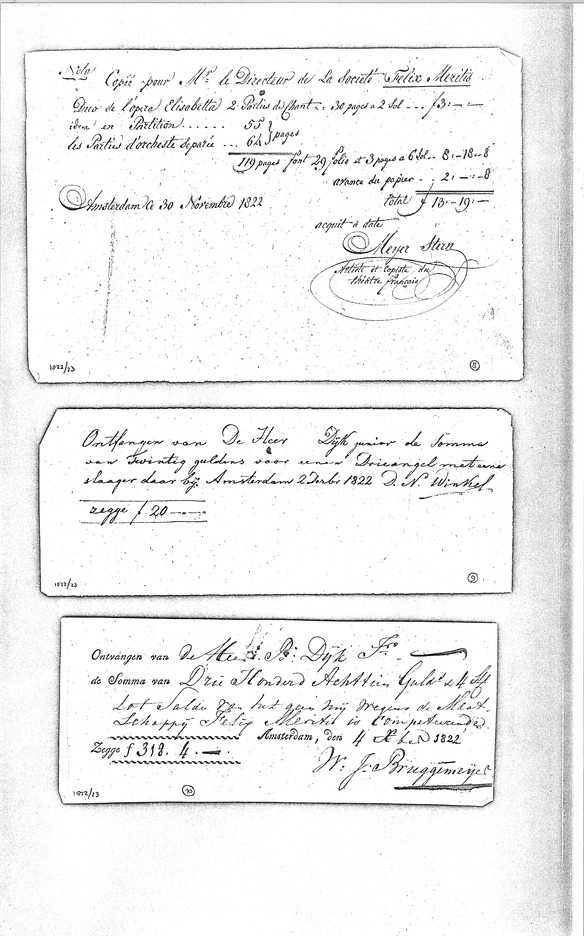 Nota
Copié pour Mr. le Directeur de La Société Felix Meritis
Duo de l'opera Elisabetta 2 Parties de Chant . 30 pages a 2 Sol --- f 3,- —
idem en Partition ...... 55
les Parties d'orchestre Separée ... 64 } pages
119 pages font 29 folio et 3 pages a 6 Sol .. 8,-18-8
avance du papier - 2,-.-8
Total f 13,-19,-
Amsterdam Ce 30 Novembre 1822
acquit à date
Meyer Stern
Artiste et Copiste du
théâtre français
1822/23
8
Ontfangen van De Heer Dijk junior de Somma
van Twintig guldens voor eenen Drieangel met eene
slaager daar bij Amsterdam 2 Decbr 1822 D. N. Winkel
zegge f 20 -.-.-
1822/23
9
Ontvangen van de Heer B. Dyk Jr.
de Somma van Drie Honderd Achttien Guld. & 4 St
tot Saldo van het geen mij wegens de Maat
Schappij Felix Meritis is Competeerende
Amsterdam, den 4 Xber 1822
Zegge f 318. 4. —
W. J. Bruggemeyer
1822/23
10